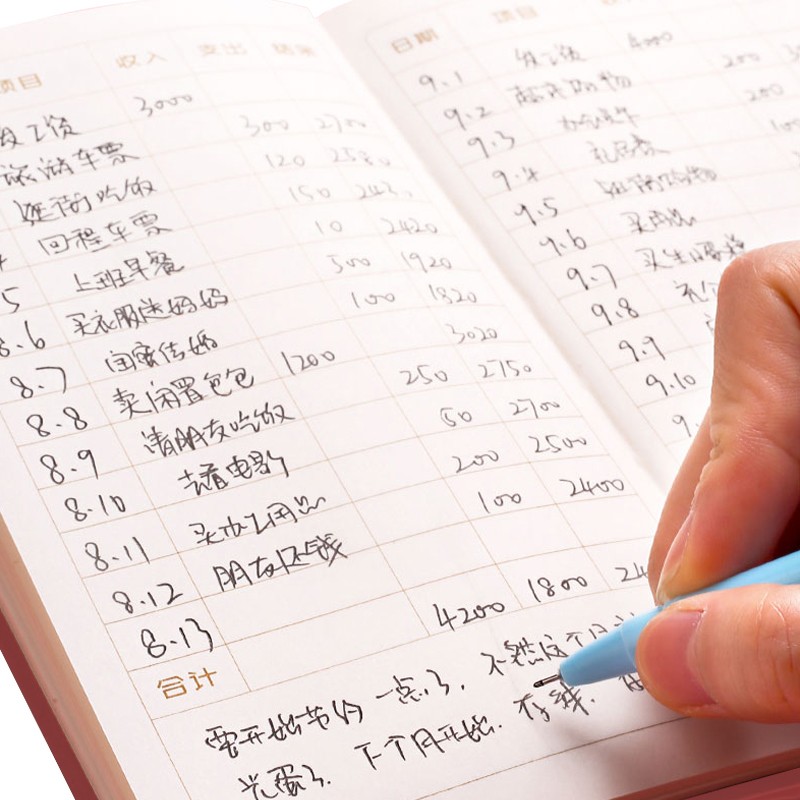 项目 收入 支出 结余
发工资 3000
旅游车票 300 2700
逛街吃饭 120 2580
4 回程车票 150 2430
5 上班早餐 10 2420
8.6 买衣服送妈妈 500 1920
8.7 闺蜜结婚 100 1820
8.8 卖闲置包包 1200 3020
8.9 请朋友吃饭 250 2750
8.10 去看电影 50 2700
8.11 买办公用品 200 2500
8.12 朋友还钱 100 2400
8.13
合计 4200 1800 24
要开始节约一点了. 不然这个月
光蛋了. 下个月开始. 存钱.
日期 项目
9.1 发工资 4000
9.2 购物 200
9.3 200
9.4 100
9.5
9.6
9.7 买生日蛋糕
9.8
9.9
9.10
9.